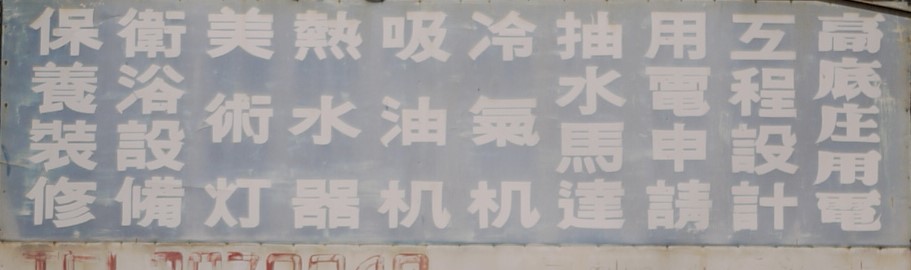 高底庒用電
工程設計
用電申請
抽水馬達
冷氣机
吸油机
熱水器
美術灯
衛浴設備
保養裝修